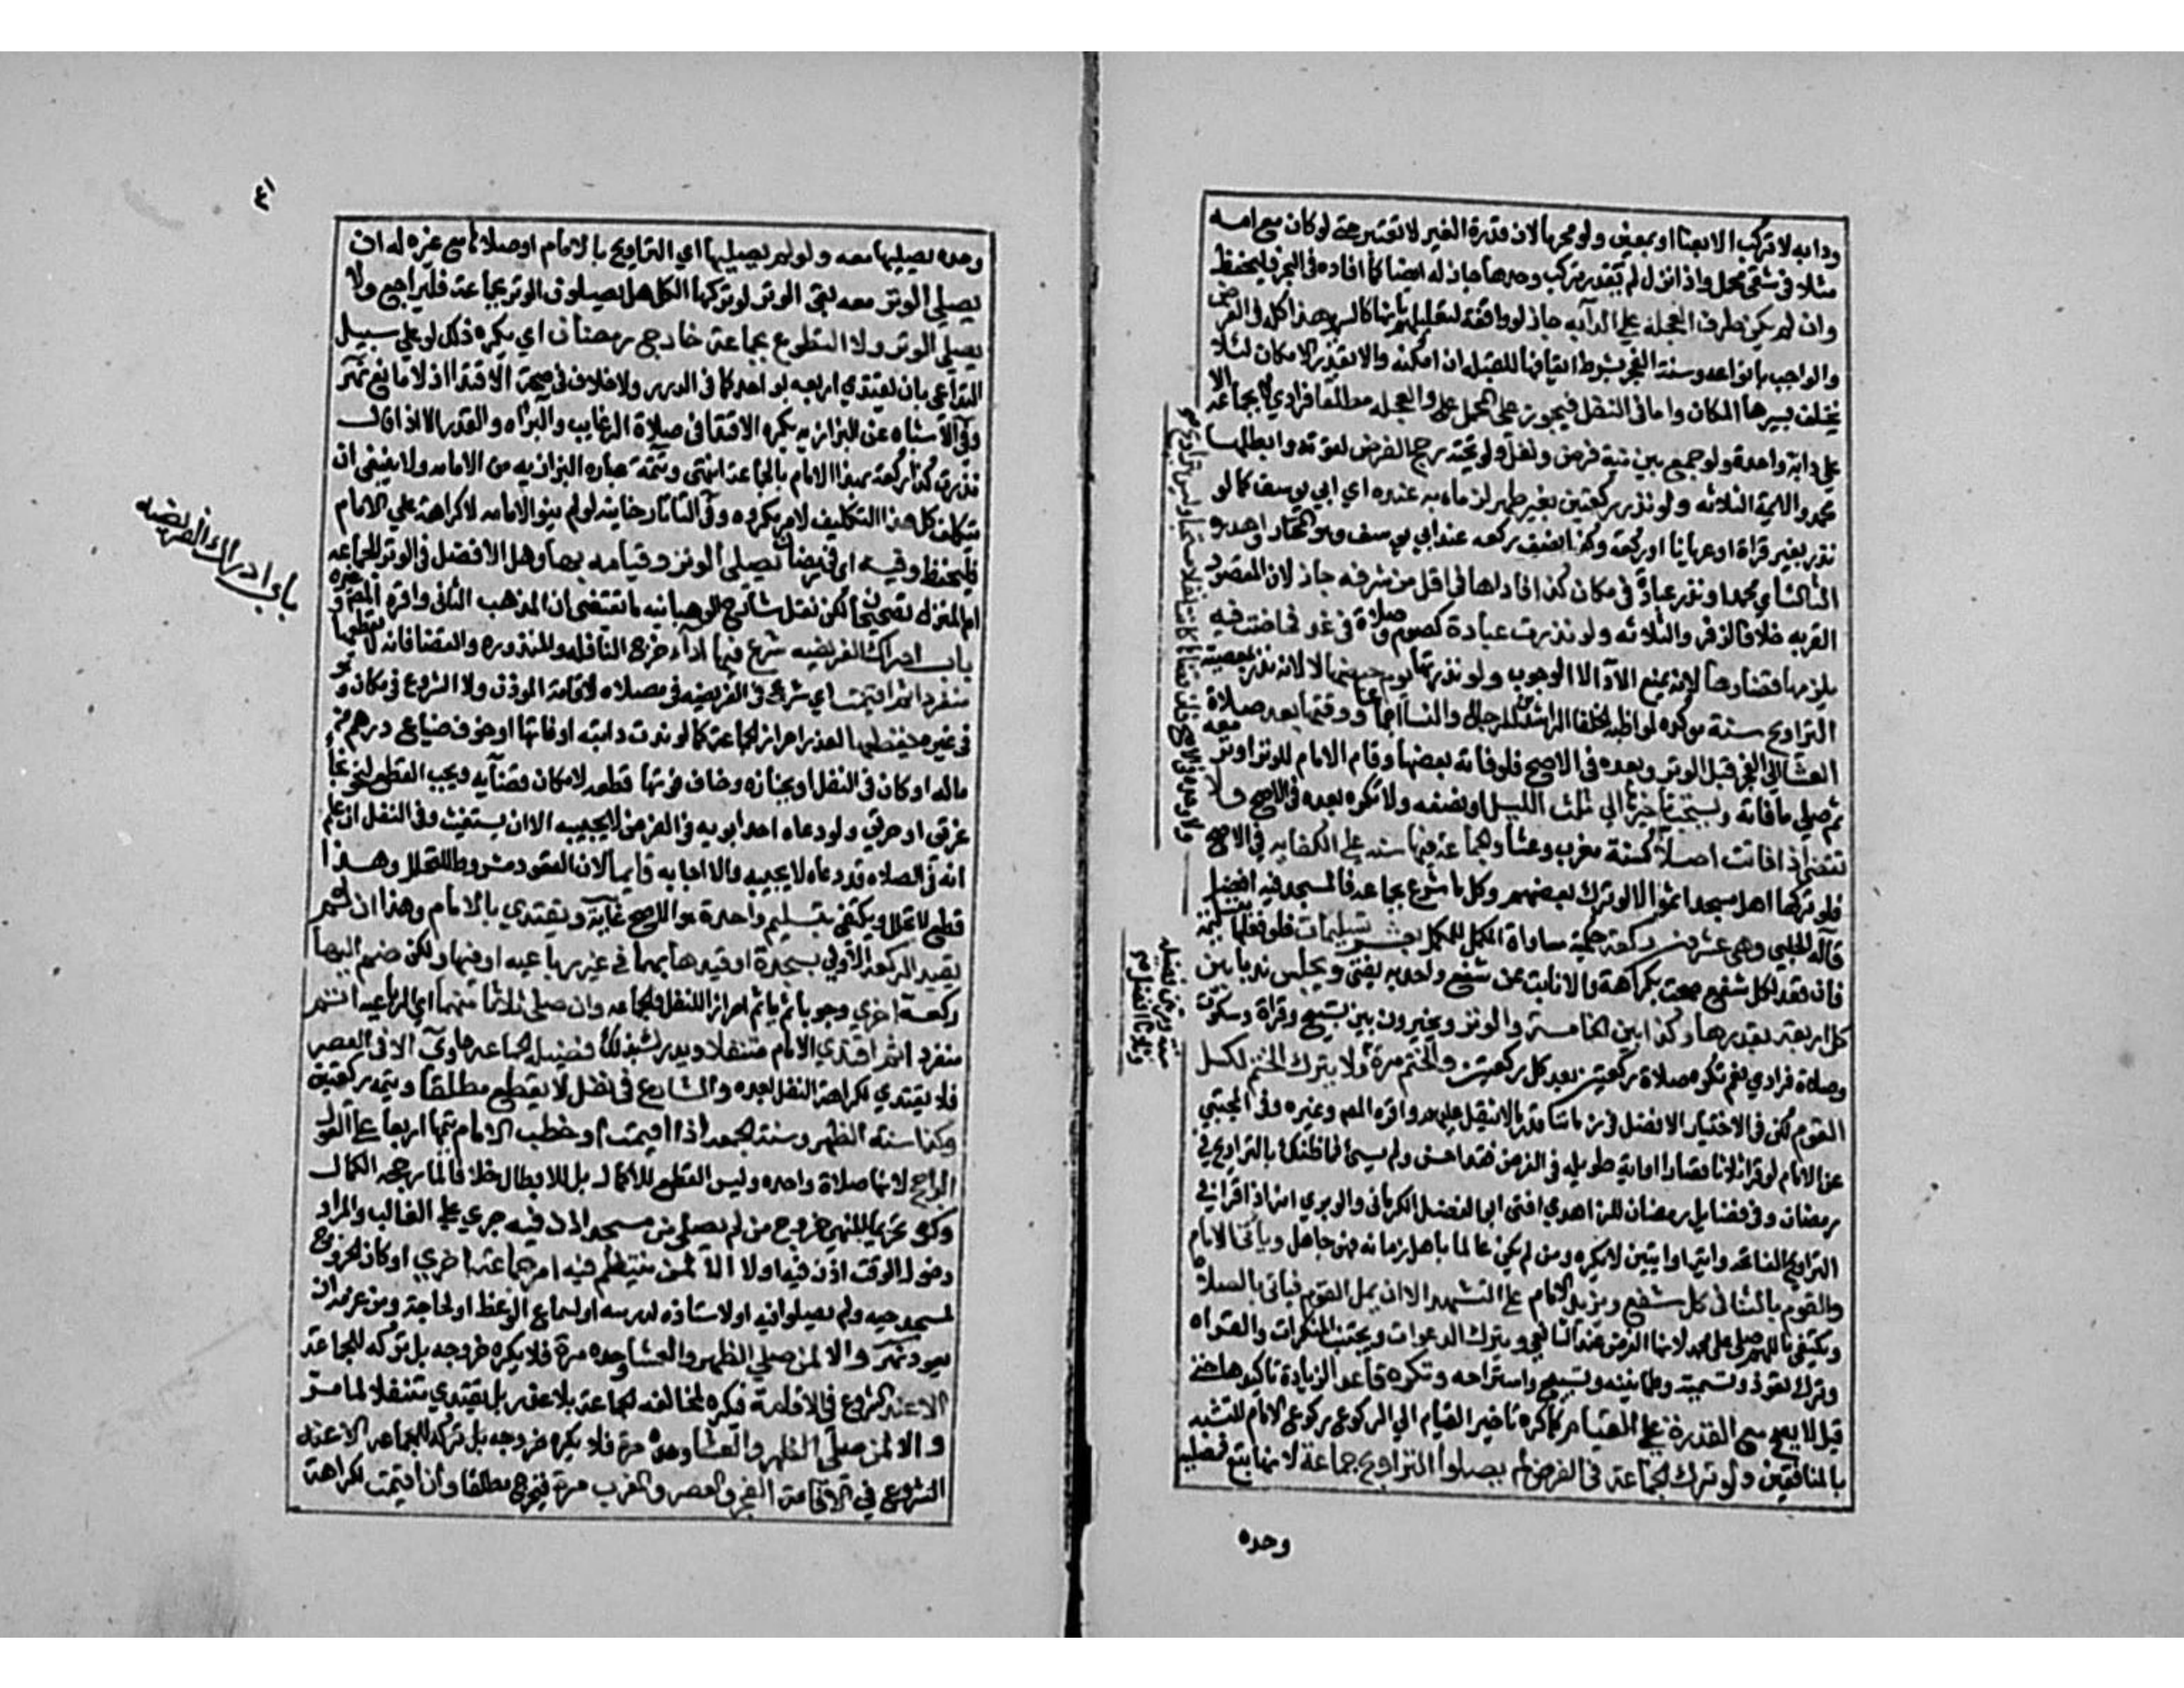 ودابه لا تركب الا بعنا او بمعين ولو محرما لان قدرة الغير لا تعتبر حتى لو كان مع امه
مثلا في شقي محمل واذا نزل لم تقدر تركب وحدها جاز له ايضا كما افاده في البحر فليحفظ
وان لم يكن طرف العجلة على الدابه جاز لو واقفة لتعليلهم بانها كالسرير هذا كله في الفرض
والواجب بانواعه وسنة الفجر بشرط ايقافها للقبله ان امكنه والا بقدر الامكان لئلا
يختلف بسيرها المكان واما في النفل فيجوز على المحمل والعجله مطلقا فرادي لا بجماعة الا
على دابة واحدة ولو جمع بين نية فرض ونفل ولو تحية رجح الفرض لقوته وابطلها
محمد والايمة الثلاثه ولو نذر ركعتين بغير طهر لزماه به عنده اي ابي يوسف كما لو
نذر بغير قراة او عريانا او ركعة وكذا نصف ركعه عند ابي يوسف وهو المختار واهدره
الثالث اي محمد او نذر عبادة في مكان كذا فاداها في اقل من شرفه جاز لان المقصود
القربه خلافا لزفر والثلاثه ولو نذرت عبادة كصوم وصلاة في غد فحاضت فيه
يلزمها قضاوها لانه يمنع الادا لا الوجوب ولو نذرتها يوم حيضها لا لانه نذر بمعصية
التراويح سنة موكده لمواظبة الخلفا الراشدين للرجال والنسا اجماعا ووقتها بعد صلاة
العشا الى الفجر قبل الوتر وبعده في الاصح فلو فاته بعضها وقام الامام للوتر اوتر معه
ثم صلي ما فاته ويستحب تاخيرها الى ثلث الليل او نصفه ولا تكره بعده في الاصح ولا
تقضى اذا فاتت اصلا كسنة مغرب وعشا والجماعة فيها سنه على الكفايه في الاصح
فلو تركها اهل مسجد اثموا الا لو ترك بعضهم وكل ما شرع بجماعة فالمسجد فيه افضل
قاله الحلبي وهي عشرون ركعة حكمته مساواة المكمل للمكمل بعشر تسليمات فلو فعلها بتسليمة
فان قعد لكل شفع صحت بكراهة والا نابت عن شفع واحد به يفتى ويجلس ندبا بين
كل اربعة بقدرها وكذا بين الخامسة والوتر ويخيرون بين تسبيح وقراة وسكوت
وصلاة فرادي نعم تكره صلاة ركعتين بعد كل ركعتين والختم مرة ولا يترك الختم لكسل
القوم لكن في الاختيار الافضل في زماننا قدر ما لا يثقل عليهم واقره المص وغيره وفي المجتبي
عن الامام لو قرا ثلاثا قصارا او اية طويله في الفرض فقد احسن ولم يسئ فما ظنك بالتراويح في
رمضان وفي فضايل رمضان للزاهدي افتى ابو الفضل الكرماني والوبري انه اذا قرا في
التراويح الفاتحه وايتها وايتين لا يكره ومن لم يكن عالما باهل زمانه فهو جاهل وياتي الامام
والقوم بالثنا في كل شفع ويزيد الامام على التشهد الا ان يمل القوم فياتي بالصلاة
ويكتفي باللهم صلى على محمد لانها الفرض عند الشافعي ويترك الدعوات ويجتنب المنكرات والقراه
وترك تعوذ وتسمية وطمانينه وتسبيح واستراحه وتكره قاعدا لزيادة تاكدها حتى
قيل لا يصح مع القدرة على القيام كما كره تاخير القيام الى الركوع ركوع الامام للتشبه
بالمنافقين ولو ترك الجماعة في الفرض لم يصلوا التراويح جماعة لانها تبع فمصليه
وحده
٤١
وحده يصليها معه ولو لم يصليها اي التراويح بالامام او صلاها مع غيره له ان
يصلي الوتر معه بقى الوتر لو تركها الكل هل يصلون الوتر بجماعة فليراجع ولا
يصلي الوتر ولا التطوع بجماعة خارج رمضان اي يكره ذلك لو على سبيل
التداعي بان يقتدي اربعه بواحد كما في الدرر ولا خلاف في صحة الاقتدا اذ لا مانع نهر
وفي الاشباه عن البزازيه يكره الاقتدا في صلاة الرغايب والبراه والقدر الا اذا قال
نذرت كذا ركعة بهذا الامام بالجماعة انتهى وتتمة عبارة البزازيه من الامامه ولا ينبغي ان
يتكلف كل هذا التكليف لامر مكروه وفي التاتارخانية لو لم ينو الامامه لا كراهة على الامام
فليحفظ وفيه اي في رمضان يصلى الوتر وقيامه بها وهل الافضل في الوتر الجماعه
ام المنزل تصحيحان لكن نقل شارح الوهبانيه ما يقتضى ان المذهب الثاني واقره المص وغيره
باب ادراك الفريضه شرع فيها اداء خرج النافله والمنذوره والقضا فانه لا يقطعها
منفردا ثم اقيمت اي شرع في الفريضه في مصلاه لا اقامة الموذن ولا الشروع في مكان وهو
في غيره يقطعها لعذر احراز الجماعة كما لو ندت دابته او فارقدرها او خاف ضياع درهم من
ماله او كان في النفل او بجنازه وخاف فوتها قطعه لامكان قضايه ويجب القطع لنحو نجاة
غرقى او حرقي ولو دعاه احد ابويه في الفرض لا يجيبه الا ان يستغيث وفي النفل ان علم
انه في الصلاه فدعاه لا يجيبه والا اجابه قايما لان القعود مشروط للتحلل وهذا
قطع لا تحلل ويكتفي بتسليم واحدة هو الاصح غاية ويقتدي بالامام وهذا ان لم
يقيد الركعة الاولي بسجدة او قيدها بهما في غير رباعيه او فيها ولكن ضم اليها
ركعة اخري وجوبا ثم ياتم احرازا للنفل والجماعه وان صلى ثلاثا منها اي الرباعيه اتم
منفردا ثم اقتدي الامام متنفلا ويدرك بذلك فضيلة الجماعة حاوي الا في العصر
فلا يقتدي لكراهة النفل بعده والشارع في نفل لا يقطع مطلقا ويتمه ركعتين
وكذا سنة الظهر وسنة الجمعه اذا اقيمت او خطب الامام يتمها اربعا على القول
الراجح لانها صلاة واحده وليس القطع للاكمال بل للابطال خلافا لما رجحه الكمال
وكره تحريما للنهي خروج من لم يصلي من مسجد اذن فيه جري على الغالب والمراد
دخول الوقت اذن فيه اولا الا لمن ينتظم به امر جماعة اخري او كان الخروج
لمسجد حيه ولم يصلوا فيه او لاستاذه لدرسه او لسماع الوعظ او لحاجة ومن عزمه ان
يعود نهر والا لمن صلي الظهر والعشا وحده مرة فلا يكره خروجه بل تركه للجماعة
الا عند الشروع في الاقامة فيكره لمخالفته الجماعة بلا عذر بل يقتدي متنفلا لما مر
والا لمن صلى الظهر والعشا وحده مرة فلا يكره خروجه بل تركه للجماعه الا عند
الشروع في الاقامة الفجر والعصر والمغرب مرة فيخرج مطلقا وان اقيمت لكراهة
باب ادراك الفريضه